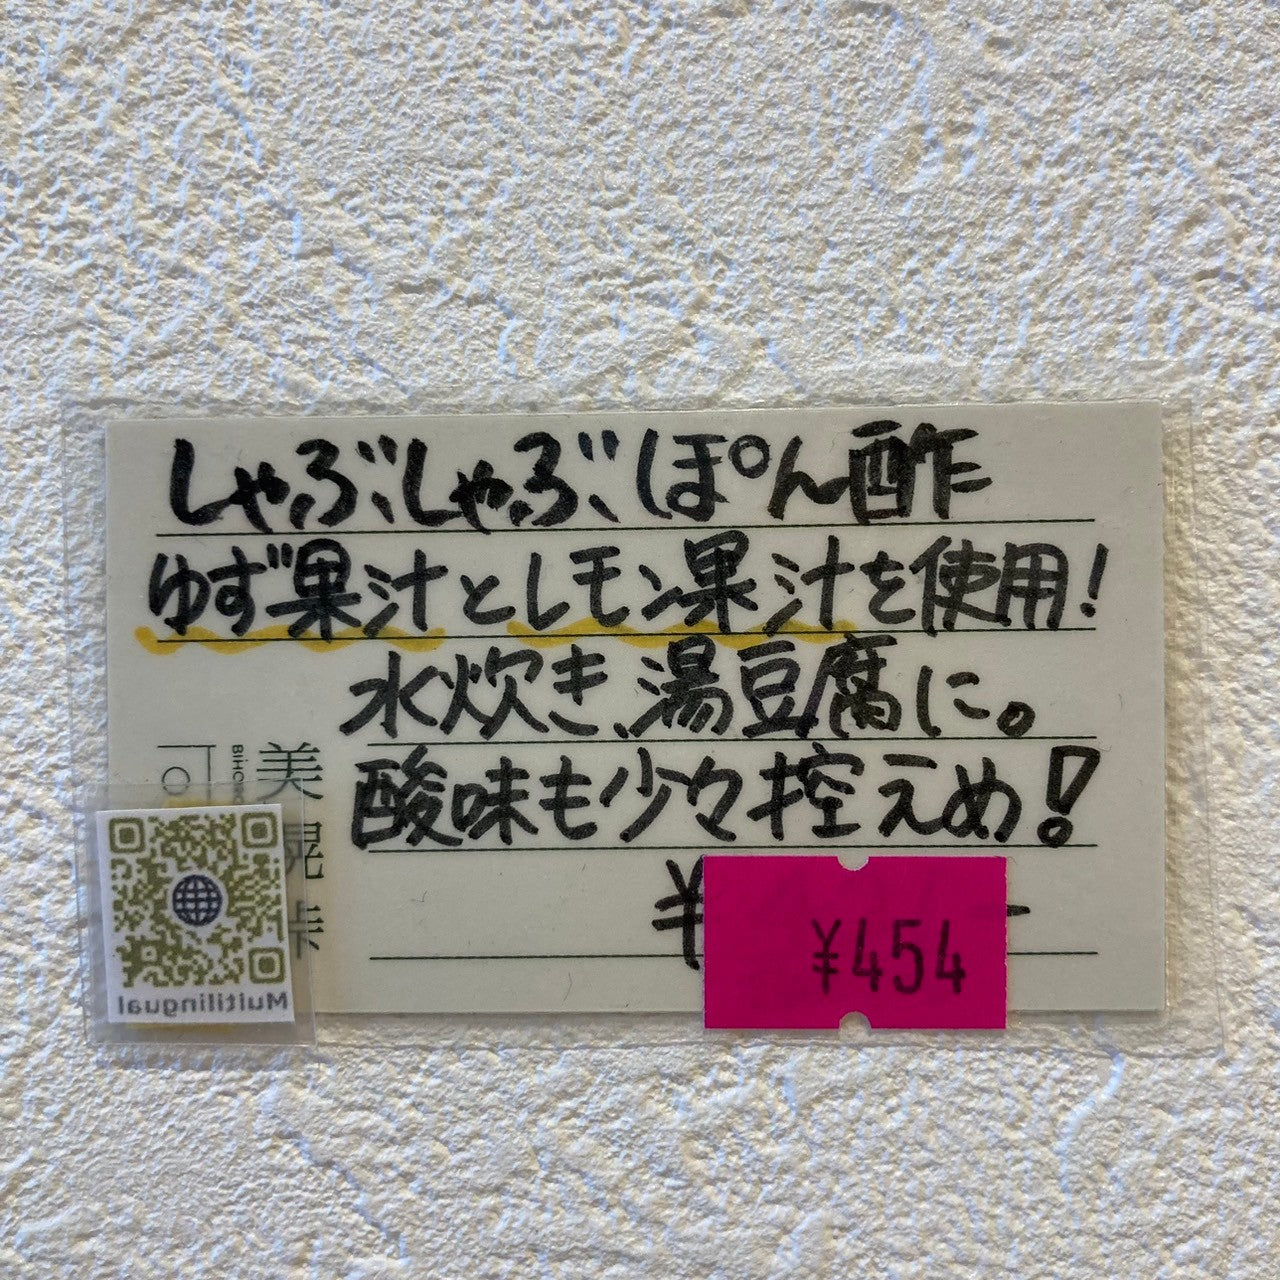 しゃぶしゃぶぽん酢
ゆず果汁とレモン果汁を使用!
水炊き、湯豆腐に。
酸味も少々控えめ!
¥
¥454
美
Multilingual